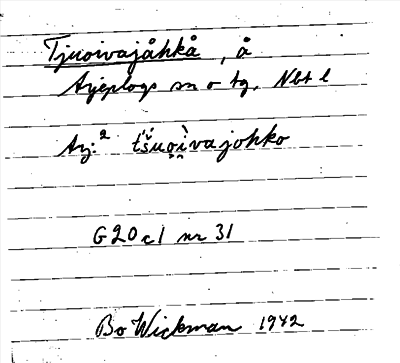 Tjuoivajåhkå, å
Arjeplogs sn o tg, Nbt l
Arj:² t́š́uo̯ì̯vajohko
G20c1 nr 31
Bo Wickman 1942